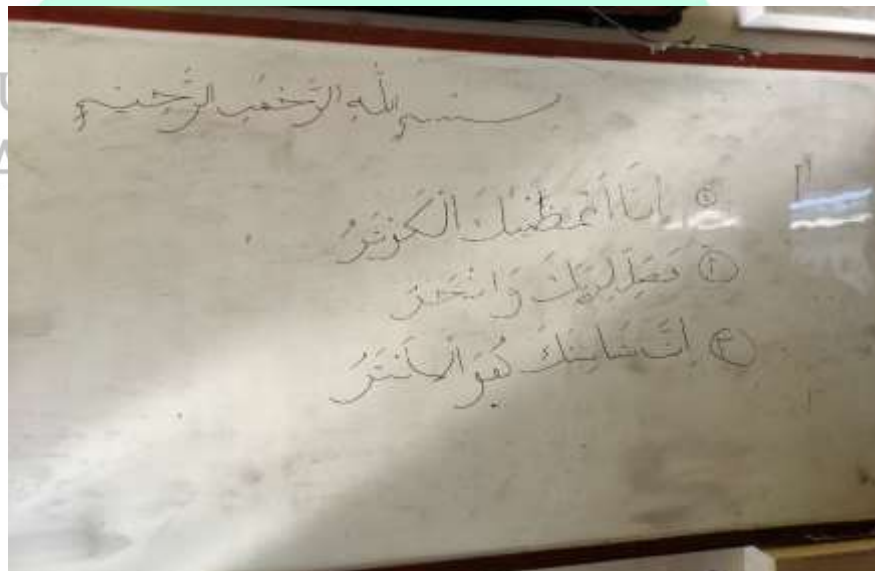 بسم الله الرحمن الرحيم
إِنَّا أَعْطَيْنَكَ الْكَوْثَرُ
فَصَلِّ لِرَبِّكَ وَانْحَرْ
اِنَّ شَانِئَكَ هُوَ الْاَبْتَرُ